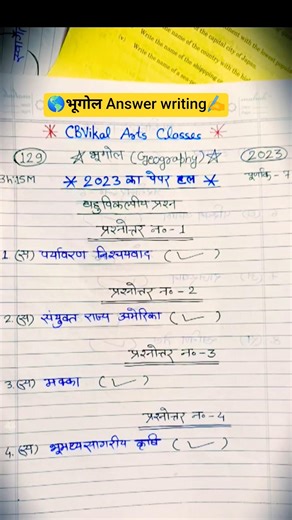 (v) Write the name of the capital city of Japan.
Write the name of the shipping
Write the name of the country with the hig
🌎भूगोल Answer writing✍️
* CBVikal Arts Classes *
129 ☆ भूगोल (Geography) ☆ 2023
3h15M * 2023 का पेपर हल * पूर्णांक - 7
बहुविकल्पीय प्रश्न
प्रश्नोत्तर न० - 1
1. (स) पर्यावरण निश्चयवाद (✓)
प्रश्नोत्तर न० - 2
2. (स) संयुक्त राज्य अमेरिका (✓)
प्रश्नोत्तर न० - 3
3. (स) मक्का (✓)
प्रश्नोत्तर न० - 4
4. (स) भूमध्यसागरीय कृषि (✓)